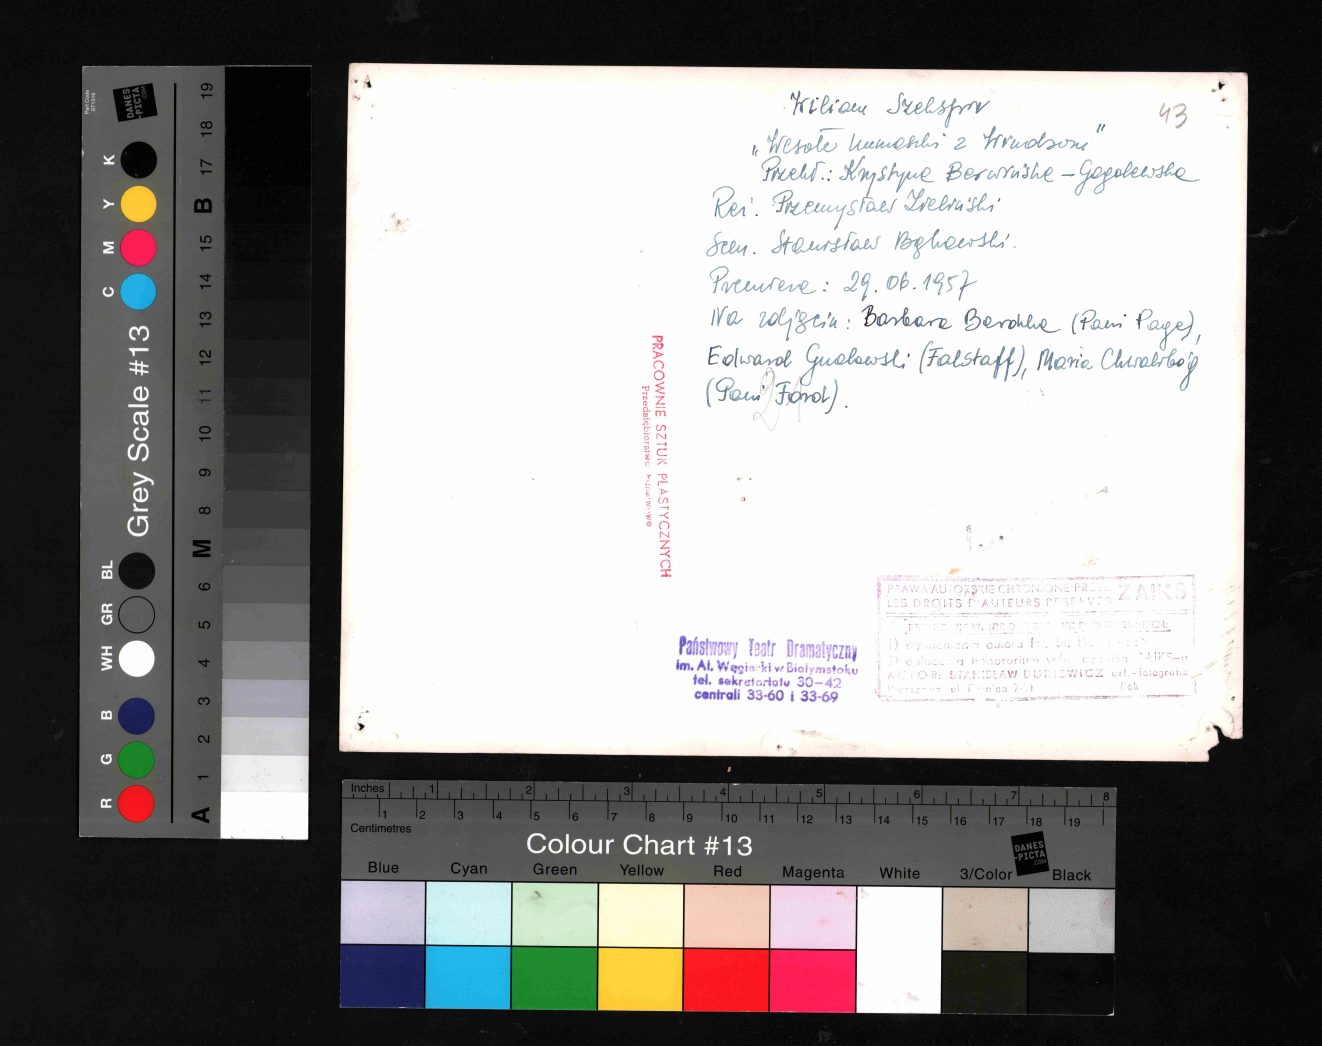 Wiliam Szekspir
43
„Wesołe kumoszki z Windsoru"
Przekł.: Krystyna Berwińska – Gogolewska
Reż. Przemysław Zieliński
Scen. Stanisław Bąkowski.
Premiera: 29.06.1957
Na zdjęciu: Barbara Bardzka (Pani Page),
Edward Gnatowski (Falstaff), Maria Chwalibóg
(Pani Ford).
PRACOWNIE SZTUK PLASTYCZNYCH
Przedsiębiorstwo Państwowe
Państwowy Teatr Dramatyczny
im. Al. Węgierki w Białymstoku
tel. sekretariatu 30-42
centrali 33-60 i 33-69
PRAWA AUTORSKIE CHRONIONE PRZEZ ZAIKS
LES DROITS D'AUTEURS RESERVES
AUTOR: STANISŁAW art.-fotografik
Warszawa, ul.
Part Code
ST1316
DANES
-PICTA
.COM
Grey Scale #13
R G B WH GR BL C M Y K
A 1 2 3 4 5 6 M 8 9 10 11 12 13 14 15 B 17 18 19
Inches 1 2 3 4 5 6 7 8
1 2 3 4 5 6 7 8 9 10 11 12 13 14 15 16 17 18 19
Centimetres
Colour Chart #13
DANES
-PICTA
.COM
Blue Cyan Green Yellow Red Magenta White 3/Color Black